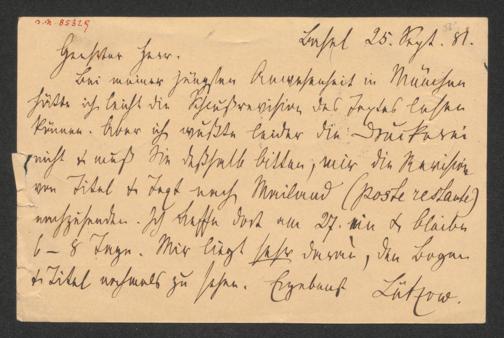 a.n. 85329
Basel 25. Sept. 81.
Geehrter Herr.
Bei meiner jüngsten Anwesenheit in München
hätte ich leicht die Schlußrevision des Textes lesen
können. Aber ich wußte leider die Druckerei
nicht & muß Sie deßhalb bitten, mir die Revision
von Titel & Text nach Mailand (poste restante)
nachzusenden. Ich treffe dort am 27. ein & bleibe
6 – 8 Tage. Mir liegt sehr daran, den Bogen
& Titel nochmals zu sehen. Ergebenst Lützow.